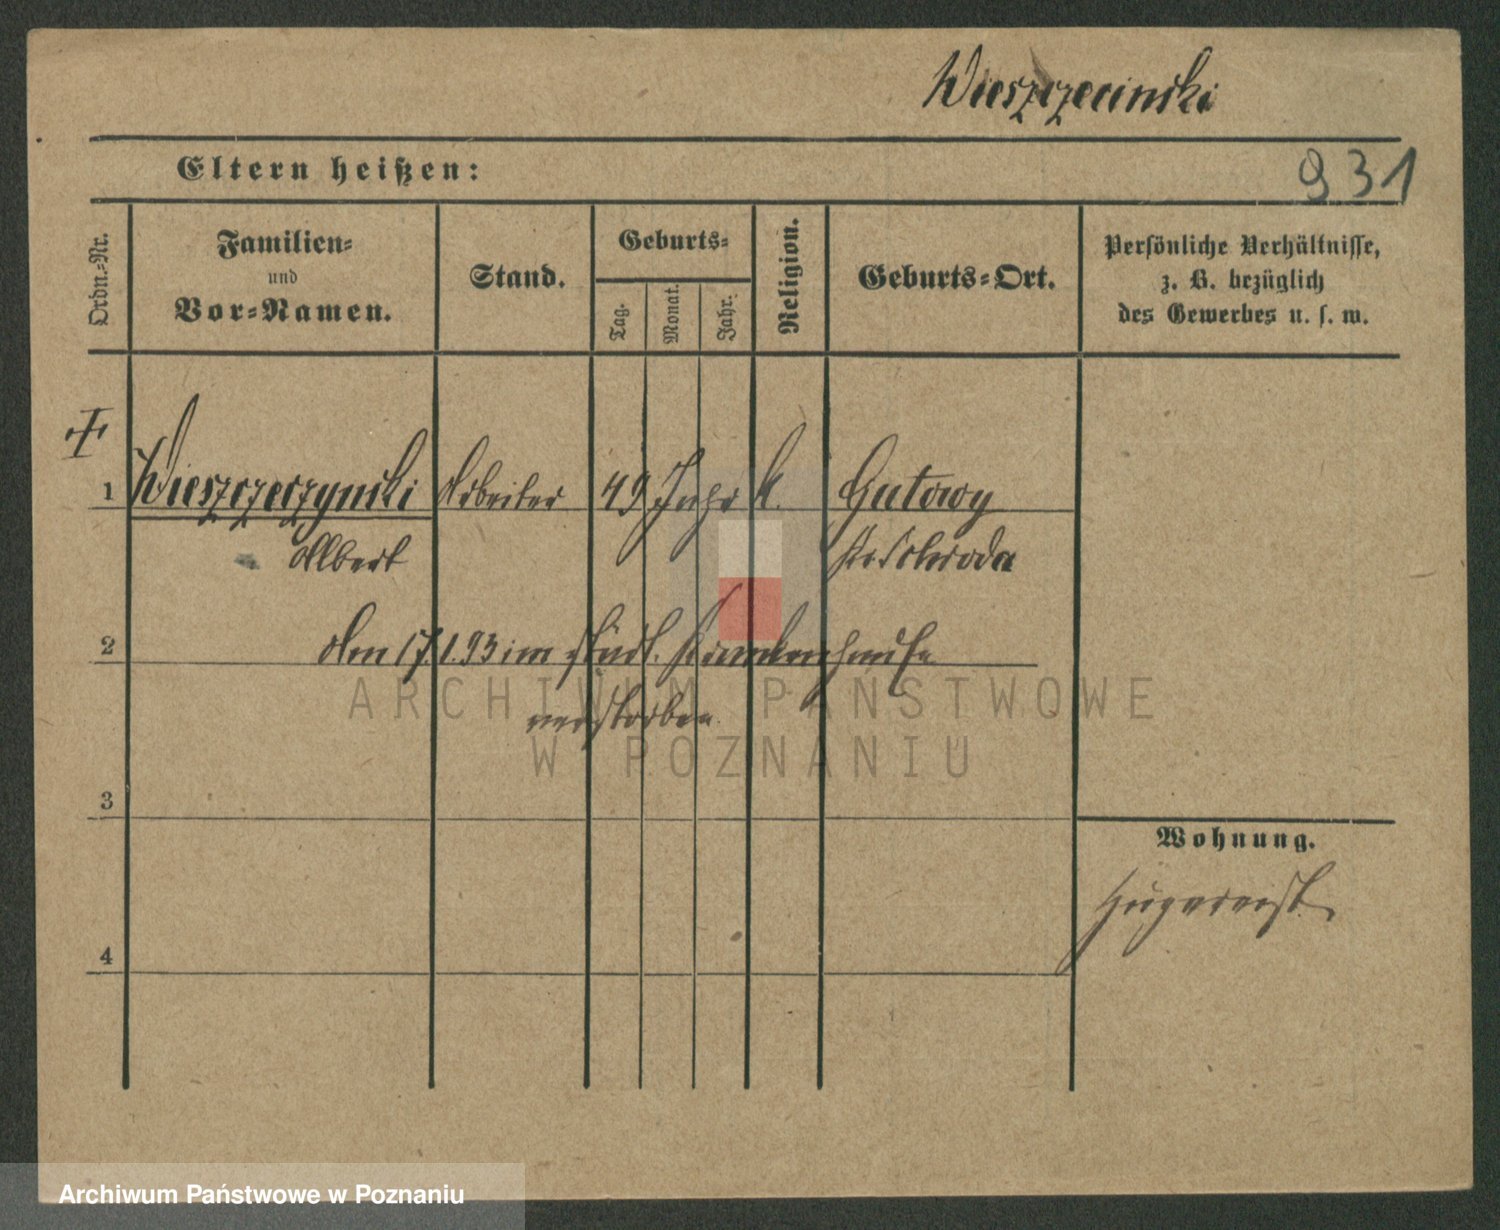 Wieszczecinski
Eltern heißen:
931
Ordn.-Nr.
Familien-
und
Vor-Namen.
Stand.
Geburts-
Tag.
Monat.
Jahr.
Religion.
Geburts-Ort.
Persönliche Verhältnisse,
z. B. bezüglich
des Gewerbes u. s. w.
1
Wieszczeczynski
Arbeiter
49 Jahr
k.
Gutowy
Albert
Kr Schroda
2
den 17.1.93 im städt. Krankenhause
verstorben
ARCHIWUM PAŃSTWOWE
W POZNANIU
3
Wohnung.
zugereist
4
Archiwum Państwowe w Poznaniu